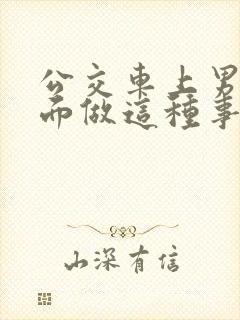 公交車上男
而做這種事
山深有信